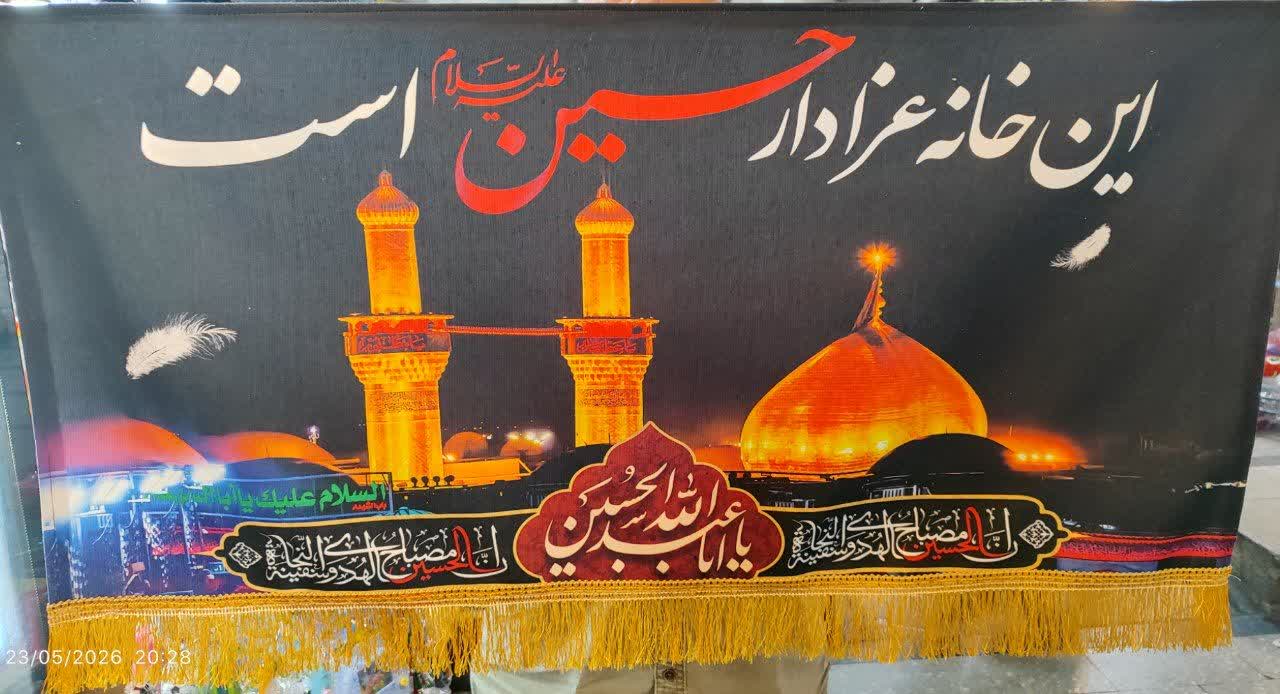 این خانه عزادار حسین علیه السلام است
السلام عليك يا ابا
إنَّ الحسين مصباح الهدى وسفينة النجاة
يا أبا عبد الله الحسين
إنَّ الحسين مصباح الهدى وسفينة النجاة
23/05/2026 20:28